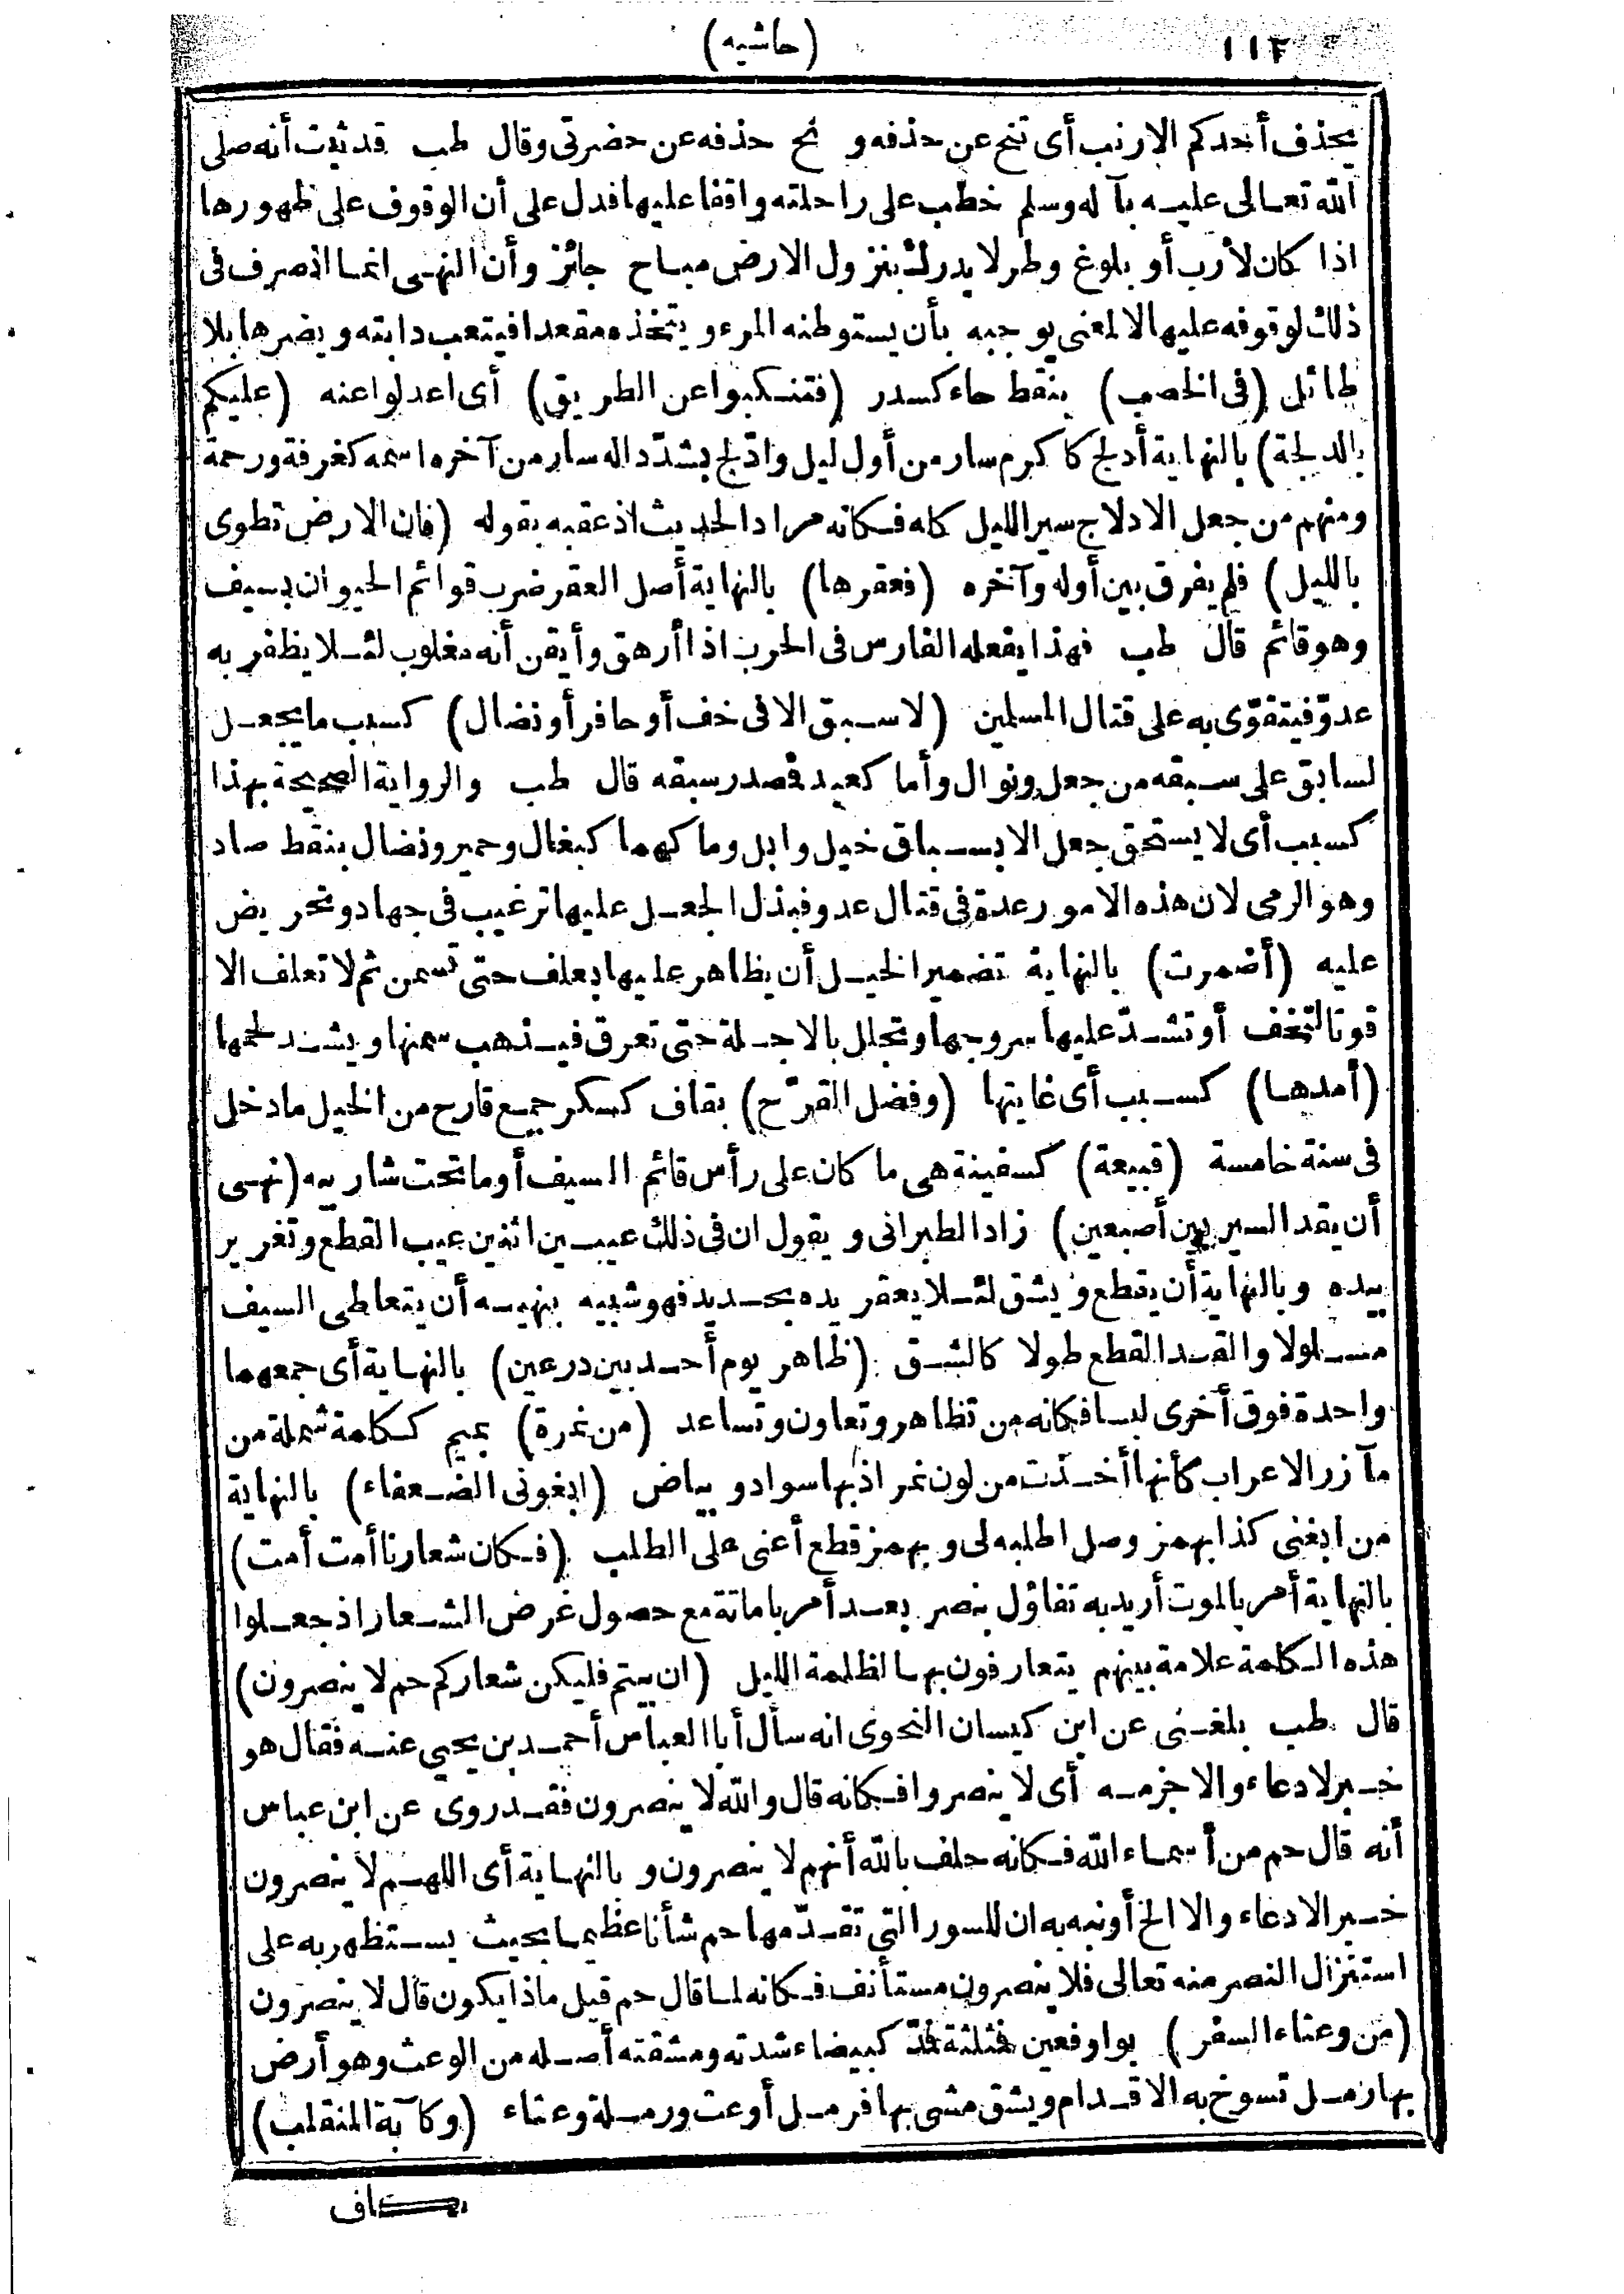 ١١٢
(حاشيه)
يحذف أحدكم الارنب أى تنح عن حذفه و نح حذفه عن حضرتى وقال طب قد ثبت أنه صلى
الله تعالى عليه بآله وسلم خطب على راحلته واقفا عليها فدل على أن الوقوف على ظهورها
اذا كان لأرب أو بلوغ وطر لا يدرك بنزول الارض مباح جائز وأن النهى انما انصرف فى
ذلك لوقوفه عليها لا لمعنى يوجبه بأن يستوطنه المرء ويتخذه مقعدا فيتعب دابته ويضرها بلا
طائل (فى الخصب) بنقط خاء كسدر (فتنكبوا عن الطريق) أى اعدلوا عنه (عليكم
بالدلجة) بالنهاية أدلج كاكرم سار من أول ليل وادّلج بشدّ داله سار من آخره اسمه كغرفة ورحمة
ومنهم من جعل الادلاج سير الليل كله فكانه مراد الحديث اذ عقبه بقوله (فان الارض تطوى
بالليل) فلم يفرق بين أوله وآخره (فعقرها) بالنهاية أصل العقر ضرب قوائم الحيوان بسيف
وهو قائم قال طب فهذا يفعله الفارس فى الحرب اذا أرهق وأيقن أنه مغلوب لئلا يظفر به
عدوّ فيتقوّى به على قتال المسلمين (لا سبق الا فى خف أو حافر أو نضال) كسبب ما يجعل
لسابق على سبقه من جعل ونوال وأما كعبد فصدر سبقه قال طب والرواية الصحيحة بهذا
كسبب أى لا يستحق جعل الا بسباق خيل وابل وما كهما كبغال وحمير ونضال بنقط صاد
وهو الرمى لان هذه الامور عدة فى قتال عدو فبذل الجعل عليها ترغيب فى جهاد وتحريض
عليه (أضمرت) بالنهاية تضمير الخيل أن يظاهر عليها بعلف حتى تسمن ثم لا تعلف الا
قوتا لتخف أو تشدّ عليها سروجها وتجلل بالاجلة حتى تعرق فيذهب سمنها ويشتد لحمها
(أمدها) كسبب أى غايتها (وفضل القرّح) بقاف كسكر جمع قارح من الخيل ما دخل
فى سنة خامسة (قبيعة) كسفينة هى ما كان على رأس قائم السيف أو ما تحت شاربيه (نهى
أن يقد السير بين أصبعين) زاد الطبرانى ويقول ان فى ذلك عيبين اثنين عيب القطع وتغرير
بيده وبالنهاية أن يقطع ويشق لئلا يعقر يده بحديد فهو شبيه بنهيه أن يتعاطى السيف
مسلولا والقد القطع طولا كالشق (ظاهر يوم أحد بين درعين) بالنهاية أى جمعهما
واحدة فوق أخرى لبسا فكانه من تظاهر وتعاون وتساعد (من نمرة) بميم ككلمة شملة من
مآزر الاعراب كأنها أخذت من لون نمر اذ بها سواد وبياض (ابغونى الضعفاء) بالنهاية
من ابغنى كذا بهمز وصل اطلبه لى وبهمز قطع أعنى على الطلب (فكان شعارنا أمت أمت)
بالنهاية أمر بالموت أريد به تفاؤل بنصر بعد أمر باماتة مع حصول غرض الشعار اذ جعلوا
هذه الكلمة علامة بينهم يتعارفون بها لظلمة الليل (ان بيتم فليكن شعاركم حم لا ينصرون)
قال طب بلغنى عن ابن كيسان النحوى انه سأل أبا العباس أحمد بن يحيى عنه فقال هو
خبر لا دعاء والا جزمه أى لا ينصروا فكانه قال والله لا ينصرون فقد روى عن ابن عباس
أنه قال حم من أسماء الله فكانه حلف بالله أنهم لا ينصرون وبالنهاية أى اللهم لا ينصرون
خبر الا دعاء والا الخ أو نبه به ان للسور التى تقدّمها حم شأنا عظيما بحيث يستظهر به على
استنزال النصر منه تعالى فلا ينصرون مستأنف فكانه لما قال حم قيل ماذا يكون قال لا ينصرون
(من وعثاء السفر) بواو فعين فثلثة فمدّ كبيضاء شدته ومشقته أصله من الوعث وهو أرض
بها رمل تسوخ به الاقدام ويشق مشى بها فرمل أوعث ورملة وعثاء (وكآبة المنقلب)
بكاف